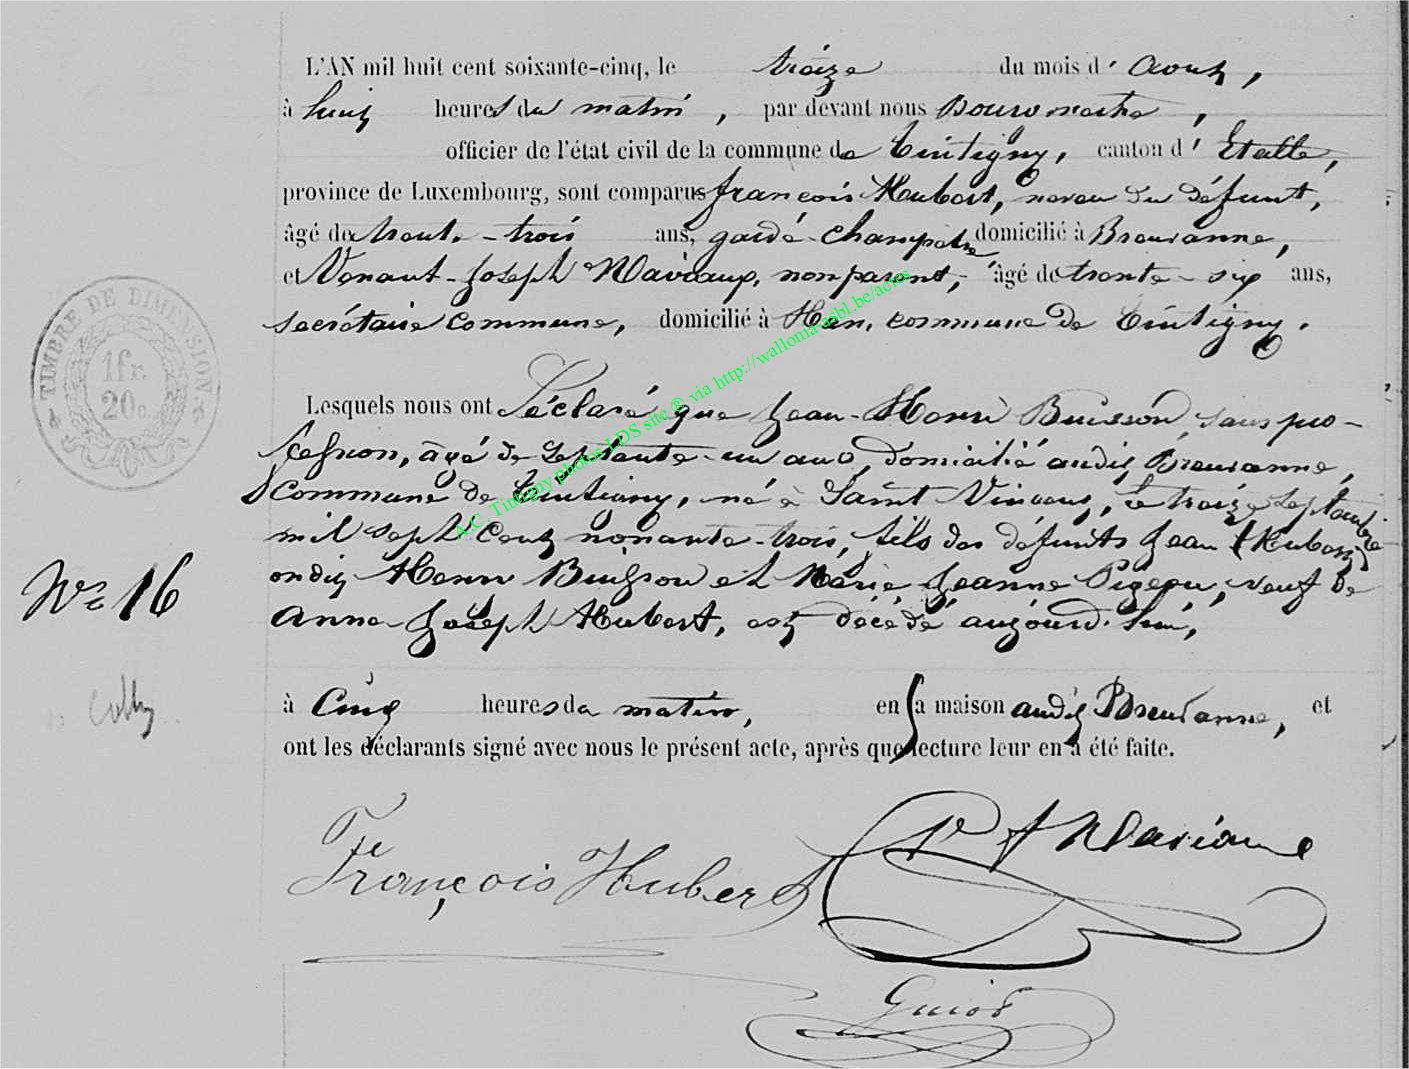 L'AN mil huit cent soixante-cinq, le treize du mois d'Aout,
à huit heures du matin, par devant nous Bourgmestre,
officier de l'état civil de la commune de Tintigny, canton d'Etalle,
province de Luxembourg, sont comparus françois Hubert, neveu du défunt,
âgé de trente-trois ans, garde-champetre domicilié à Breuvanne,
et Venant-Joseph Mariaux, non parent, âgé de trente-six ans,
secrétaire commune, domicilié à Han, commune de Tintigny.
TIMBRE DE DIMENSION.
1fr.
20c.
Lesquels nous ont Déclaré que Jean-Henri Buisson, sans pro-
fession, âgé de septante-un ans, domicilié audit Breuvanne,
commune de Tintigny, né à Saint Vincent, le treize septembre
mil sept cent nonante-trois, fils des défunts Jean (Hubert)
ondit Henri Buisson et Marie Jeanne Pigeon, veuf de
Anne Joseph Hubert, est décédé aujourd'hui,
N° 16
à cinq heures du matin, en sa maison audit Breuvanne, et
ont les déclarants signé avec nous le présent acte, après que lecture leur en a été faite.
François Hubert
V J Mariaux
Guiot
A.C. Tintigny photos LDS site ® via http://wallonia-asbl.be/actes